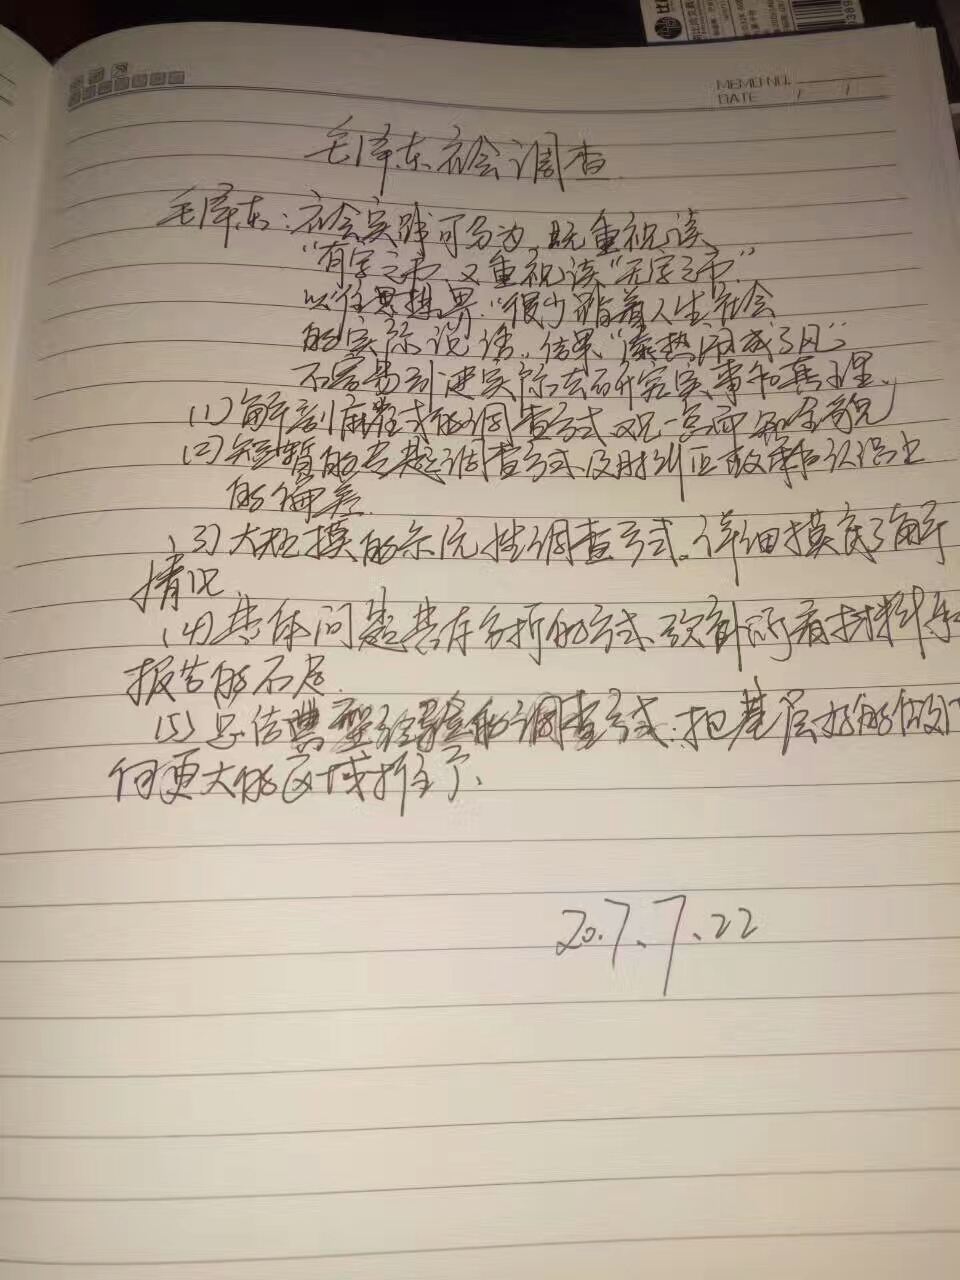 MEMO NO.
DATE / /
毛泽东社会调查
毛泽东:社会实践可分为,既重视读
"有字之书",又重视读"无字之书"
以往思想界,"很少踏着人生社会
的实际说话",结果"凑热闹成了风"
不容易引进实际去研究实事和真理。
(1)解剖麻雀式的调查方式,观一点而知全貌
(2)短暂的专题调查方式,及时纠正政策和认识上
的偏差.
(3)大规模的系统性调查方式,详细摸底了解
情况
(4)具体问题具体分析的方式,弥补所有材料和
报告的不足.
(5)总结典型经验的调查方式:把基层好的做法
向更大的区域推广.
2017.7.22